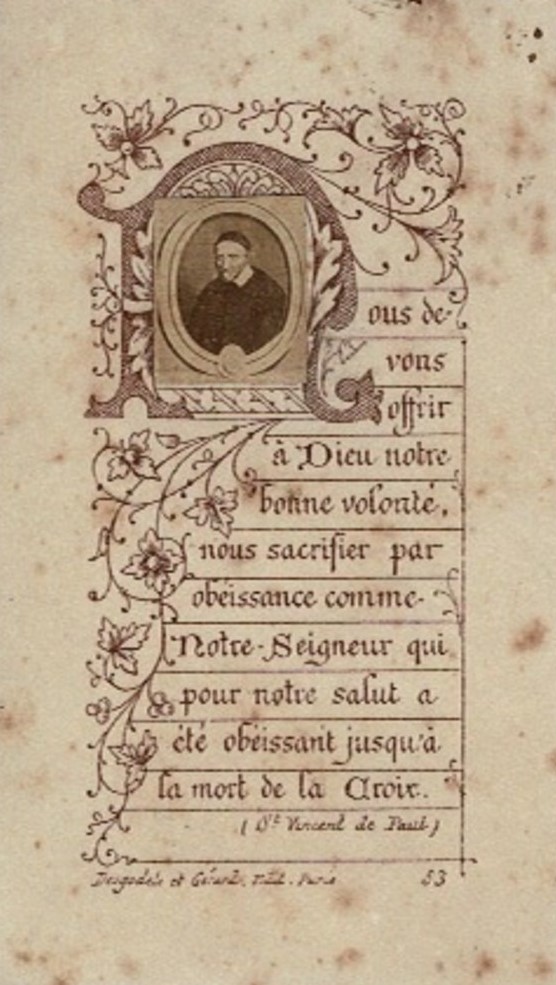 Nous de-
vons
offrir
à Dieu notre
bonne volonté,
nous sacrifier par
obéissance comme
Notre-Seigneur qui
pour notre salut a
été obéissant jusqu'à
la mort de la Croix.
(St Vincent de Paul)
et Paris 53